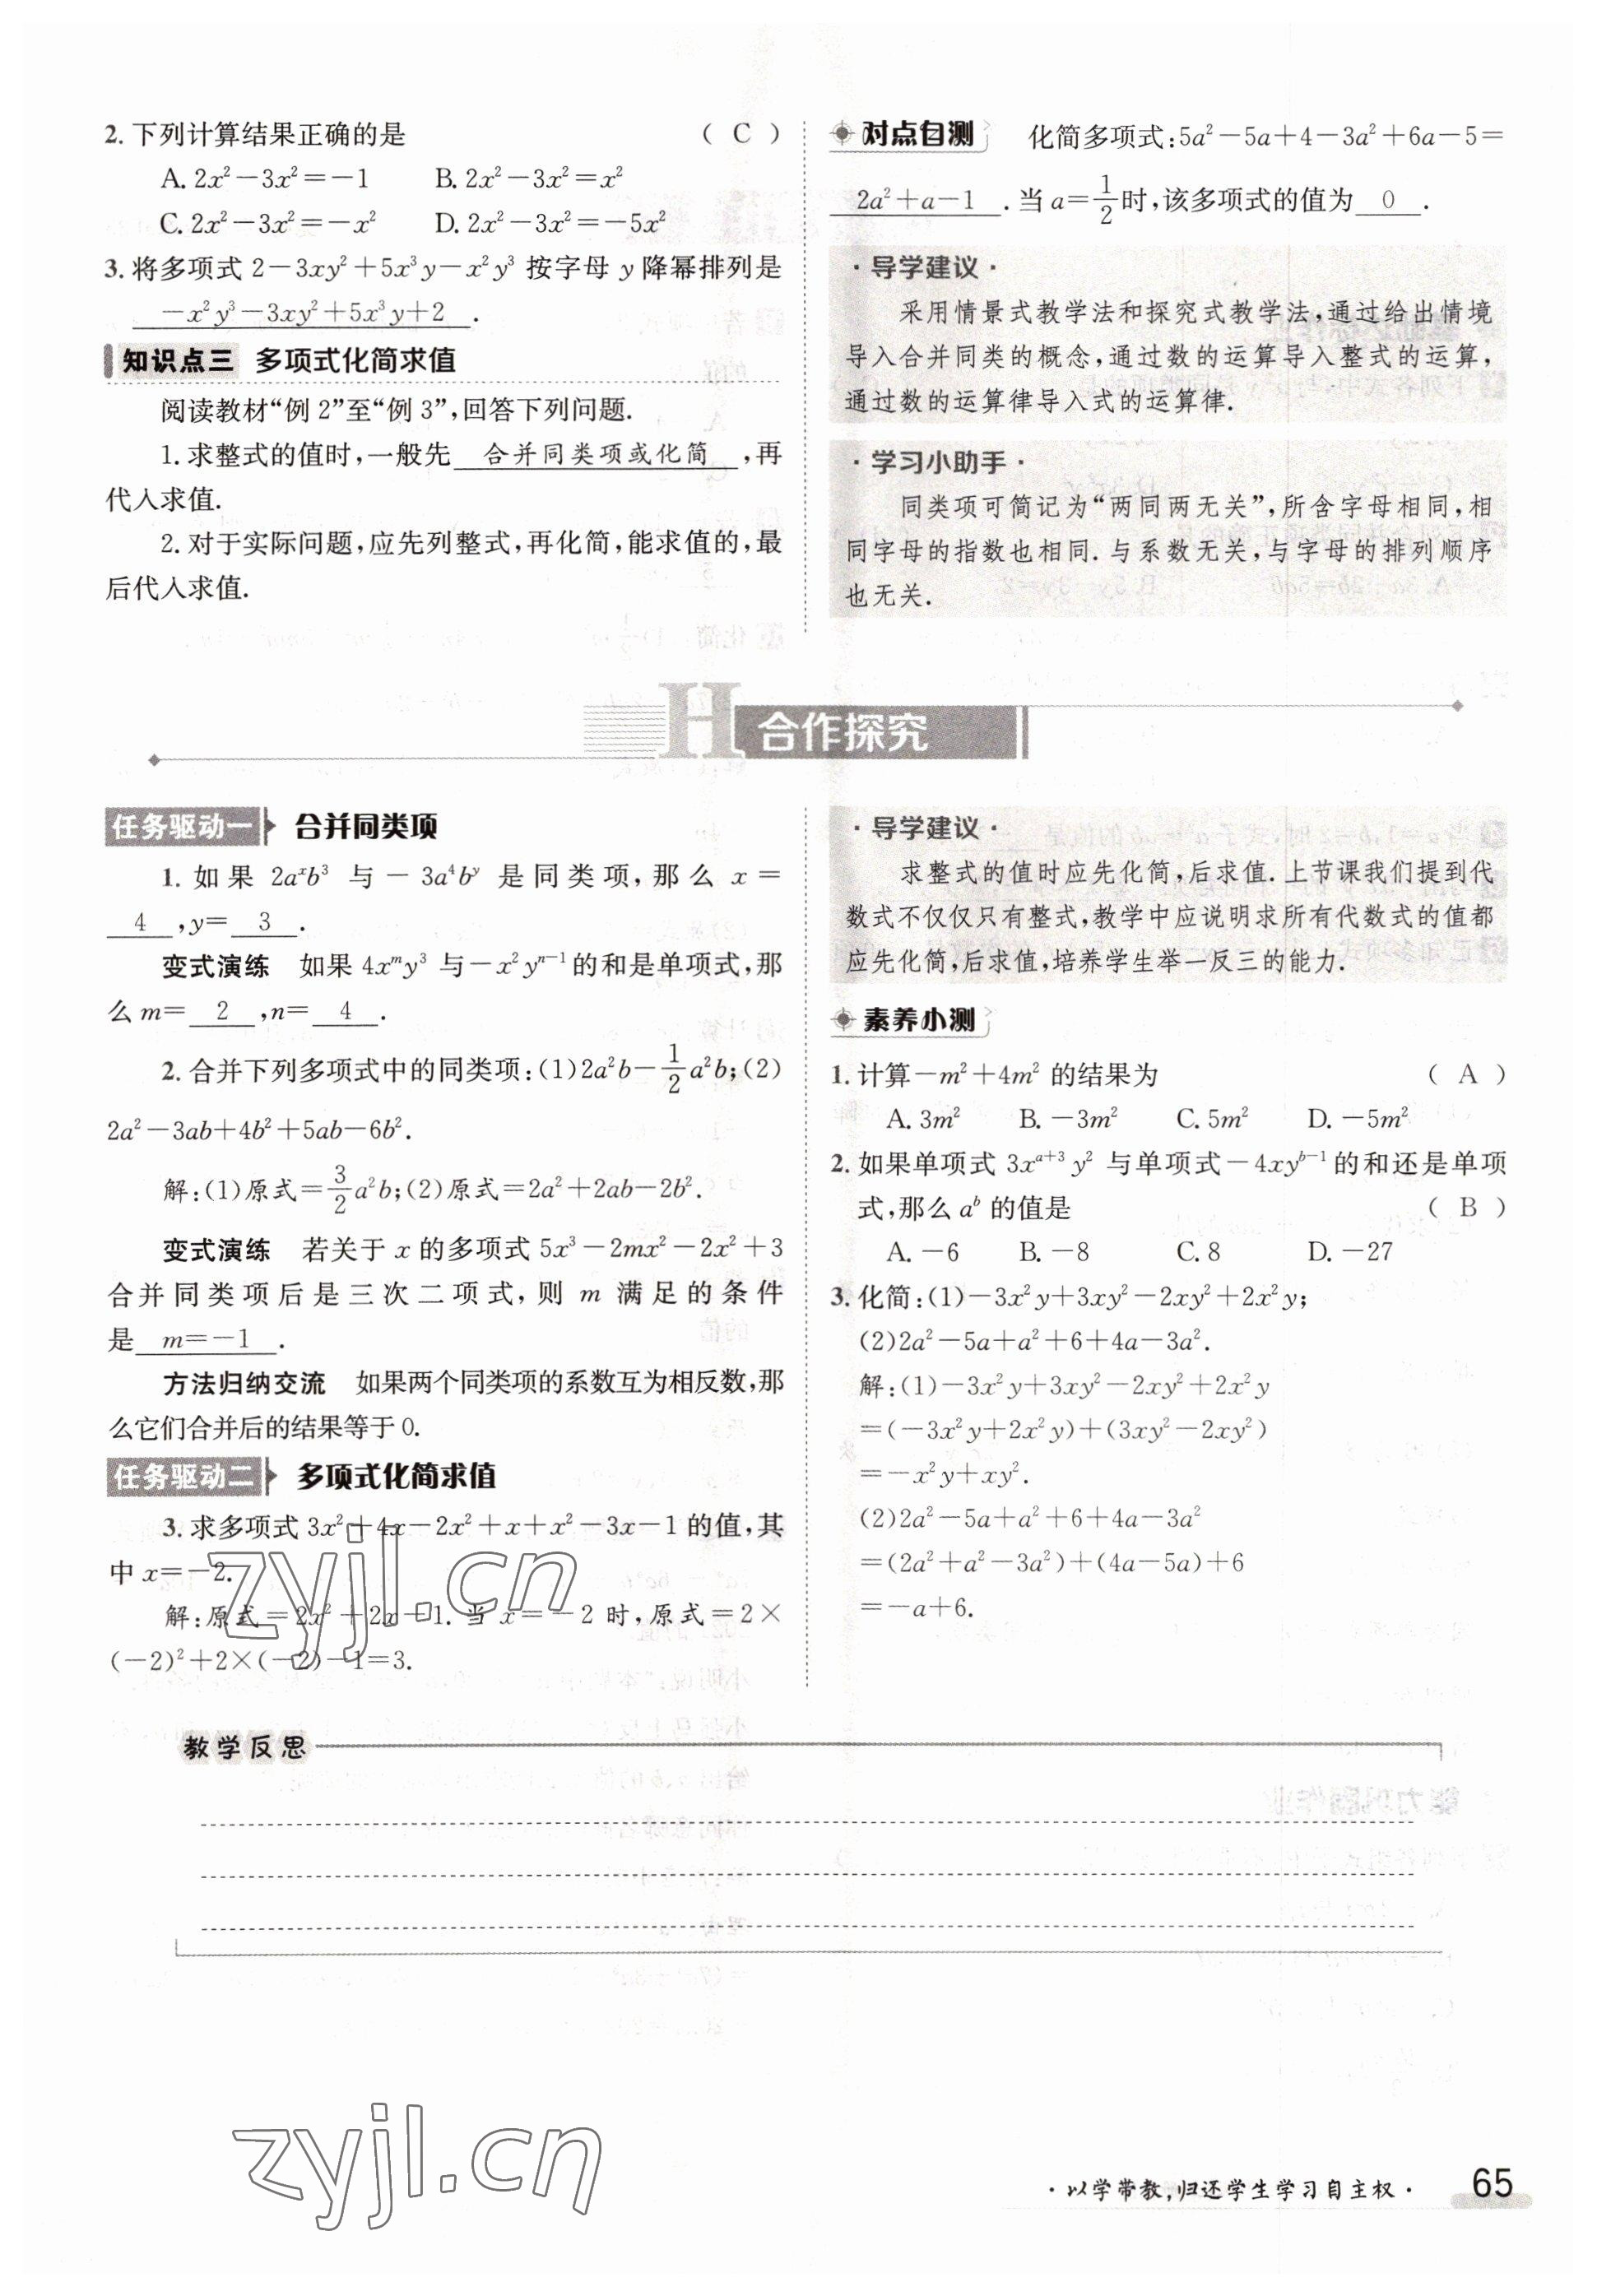 2. 下列计算结果正确的是 ( C )
A. 2x²－3x²＝－1 B. 2x²－3x²＝x²
C. 2x²－3x²＝－x² D. 2x²－3x²＝－5x²
3. 将多项式 2－3xy²＋5x³y－x²y³ 按字母 y 降幂排列是
－x²y³－3xy²＋5x³y＋2 .
知识点三 多项式化简求值
阅读教材“例 2”至“例 3”,回答下列问题.
1. 求整式的值时,一般先 合并同类项或化简 ,再
代入求值.
2. 对于实际问题,应先列整式,再化简,能求值的,最
后代入求值.
对点自测 化简多项式:5a²－5a＋4－3a²＋6a－5＝
2a²＋a－1 .当 a＝1/2时,该多项式的值为 0 .
·导学建议·
采用情景式教学法和探究式教学法,通过给出情境
导入合并同类的概念,通过数的运算导入整式的运算,
通过数的运算律导入式的运算律.
·学习小助手·
同类项可简记为“两同两无关”,所含字母相同,相
同字母的指数也相同.与系数无关,与字母的排列顺序
也无关.
H 合作探究
任务驱动一 合并同类项
1. 如果 2aˣb³ 与－3a⁴bʸ 是同类项,那么 x＝
4 ,y＝ 3 .
变式演练 如果 4xᵐy³ 与－x²yⁿ⁻¹的和是单项式,那
么 m＝ 2 ,n＝ 4 .
2. 合并下列多项式中的同类项:(1)2a²b－1/2a²b;(2)
2a²－3ab＋4b²＋5ab－6b².
解:(1)原式＝3/2a²b;(2)原式＝2a²＋2ab－2b².
变式演练 若关于 x 的多项式 5x³－2mx²－2x²＋3
合并同类项后是三次二项式,则 m 满足的条件
是 m＝－1 .
方法归纳交流 如果两个同类项的系数互为相反数,那
么它们合并后的结果等于 0.
任务驱动二 多项式化简求值
3. 求多项式 3x²＋4x－2x²＋x＋x²－3x－1 的值,其
中 x＝－2.
解:原式＝2x²＋2x－1. 当 x＝－2 时,原式＝2×
(－2)²＋2×(－2)－1＝3.
zyjl.cn
·导学建议·
求整式的值时应先化简,后求值.上节课我们提到代
数式不仅仅只有整式,教学中应说明求所有代数式的值都
应先化简,后求值,培养学生举一反三的能力.
素养小测
1. 计算－m²＋4m² 的结果为 ( A )
A. 3m² B. －3m² C. 5m² D. －5m²
2. 如果单项式 3xᵃ⁺³y² 与单项式－4xyᵇ⁻¹的和还是单项
式,那么 aᵇ 的值是 ( B )
A. －6 B. －8 C. 8 D. －27
3. 化简:(1)－3x²y＋3xy²－2xy²＋2x²y;
(2)2a²－5a＋a²＋6＋4a－3a².
解:(1)－3x²y＋3xy²－2xy²＋2x²y
＝(－3x²y＋2x²y)＋(3xy²－2xy²)
＝－x²y＋xy².
(2)2a²－5a＋a²＋6＋4a－3a²
＝(2a²＋a²－3a²)＋(4a－5a)＋6
＝－a＋6.
教学反思
zyjl.cn
·以学带教,归还学生学习自主权· 65